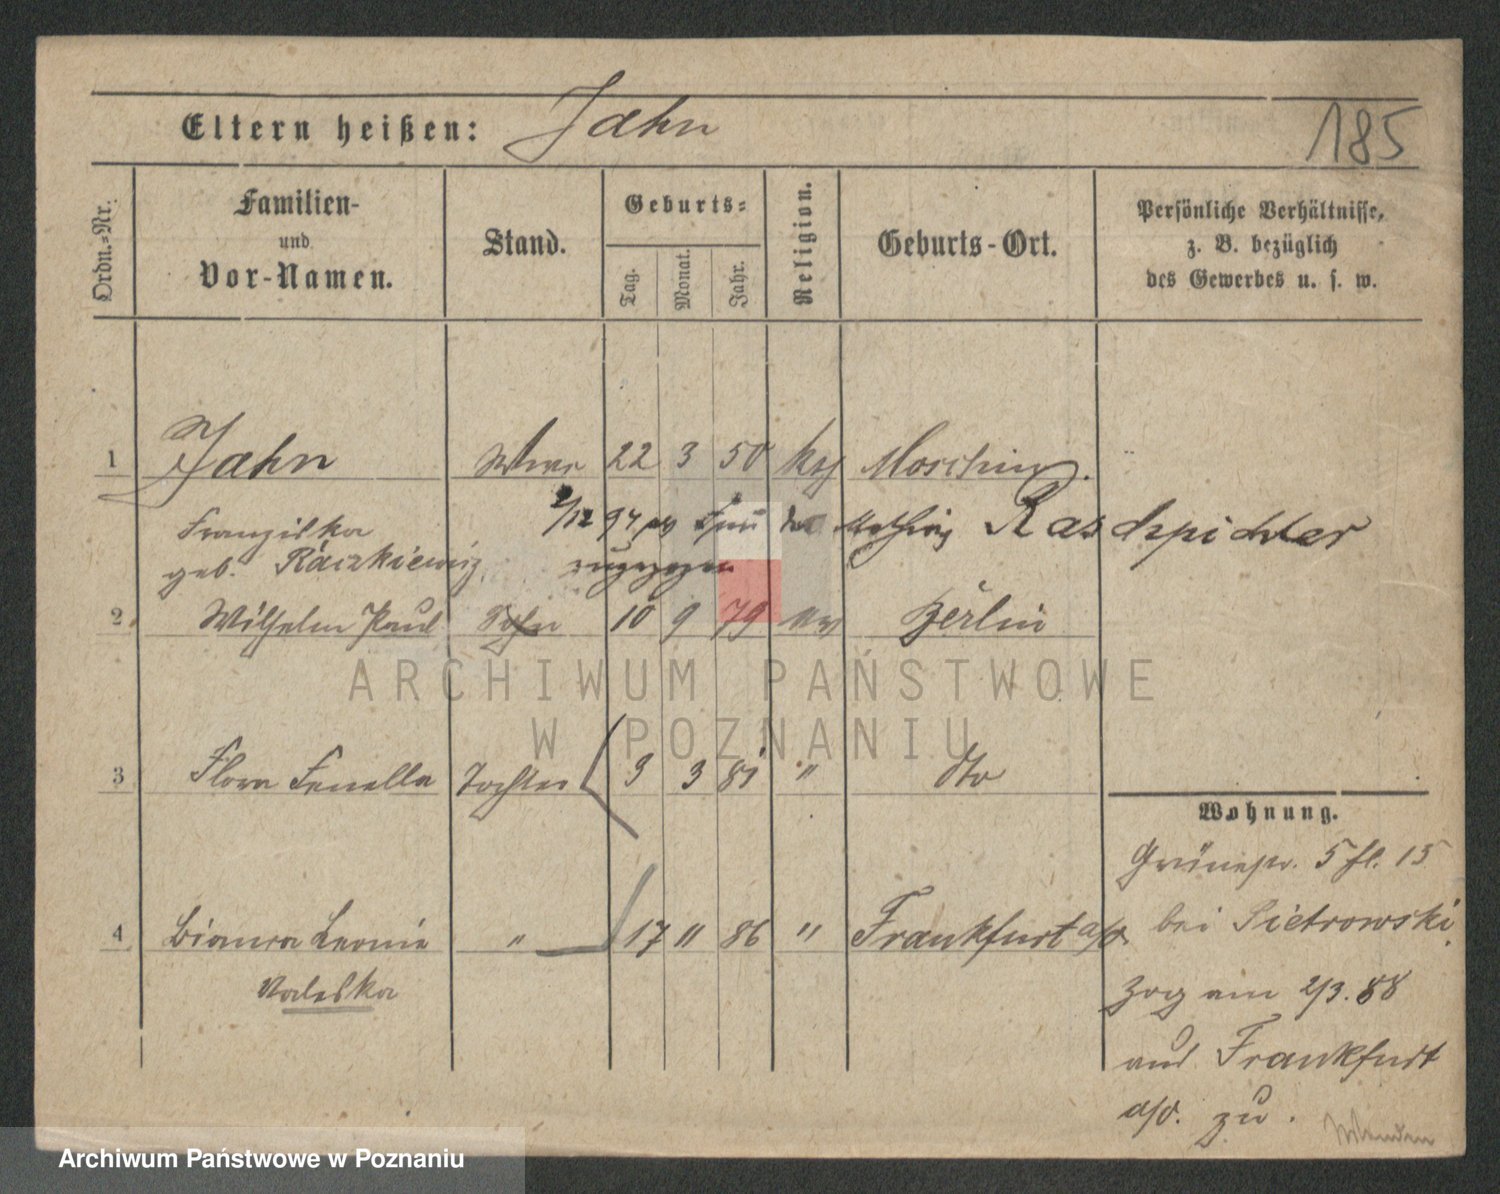 Eltern heißen: Jahn
185
Ordn.-Nr.
Familien-
und
Vor-Namen.
Stand.
Geburts-
Tag.
Monat.
Jahr.
Religion.
Geburts-Ort.
Persönliche Verhältnisse,
z. B. bezüglich
des Gewerbes u. s. w.
1 Jahn 22 3 50 Moschin
Franziska
geb. Raczkiewicz
2/12 94 Raschpichler
zugezogen
2 Wilhelm Paul Sohn 10 9 79 Berlin
3 Flora Fenella Tochter 9 3 81 " dto
4 Bianca Leonie " 17 " 86 " Frankfurt a/O
Valeska
Wohnung.
Grünestr. 5 fl. 15
bei Pietrowski.
Zog am 2/3. 88
aus Frankfurt
a/O. zu.
ARCHIWUM PAŃSTWOWE
W POZNANIU
Archiwum Państwowe w Poznaniu